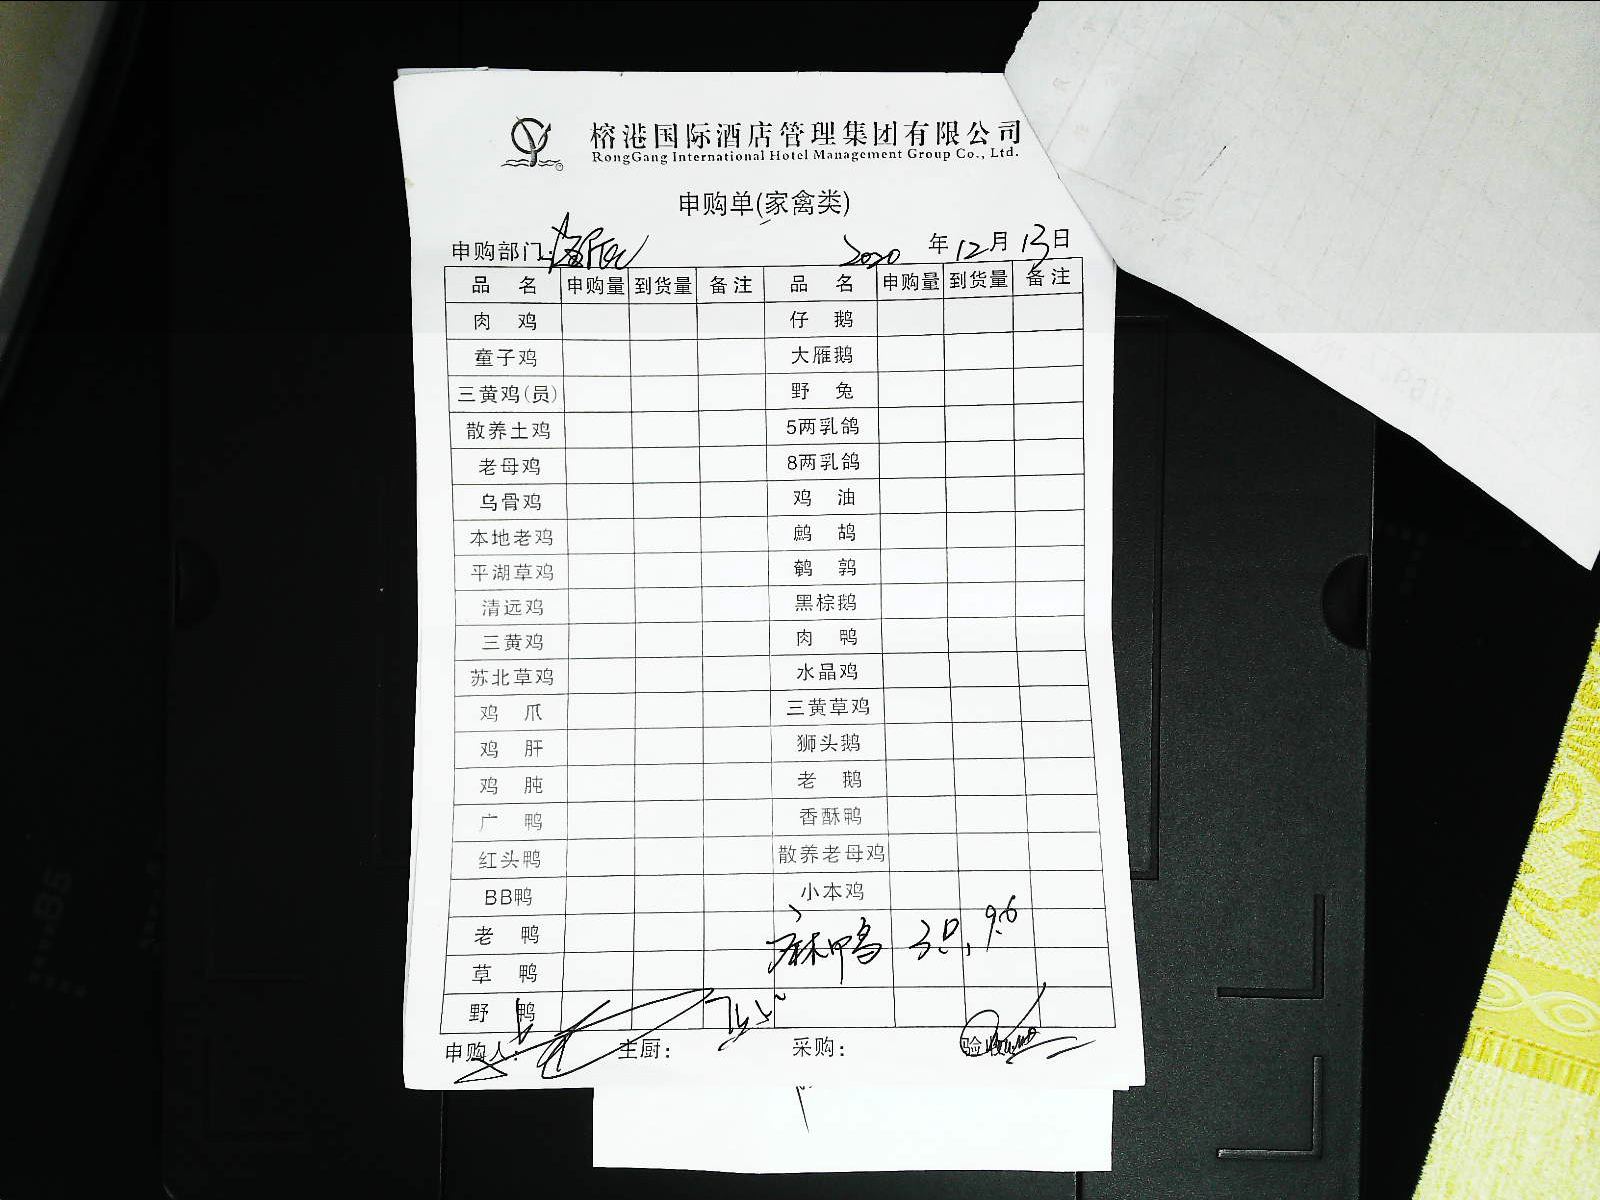 榕港国际酒店管理集团有限公司
RongGang International Hotel Management Group Co., Ltd.
申购单(家禽类)
申购部门: 2020 年 12 月 13 日
品 名 申购量 到货量 备注 品 名 申购量 到货量 备注
肉 鸡 仔 鹅
童子鸡 大雁鹅
三黄鸡(员) 野 兔
散养土鸡 5两乳鸽
老母鸡 8两乳鸽
乌骨鸡 鸡 油
本地老鸡 鹧 鸪
平湖草鸡 鹌 鹑
清远鸡 黑棕鹅
三黄鸡 肉 鸭
苏北草鸡 水晶鸡
鸡 爪 三黄草鸡
鸡 肝 狮头鹅
鸡 肫 老 鹅
广 鸭 香酥鸭
红头鸭 散养老母鸡
BB鸭 小本鸡
老 鸭 麻鸭 3只, 9.6
草 鸭
野 鸭
申购人: 主厨: 采购: 验收